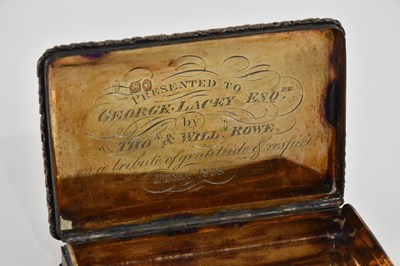 PRESENTED TO
GEORGE LACEY ESQ.RE
by
THO.S & WILL.M ROWE.
as a tribute of gratitude & respect.
1835